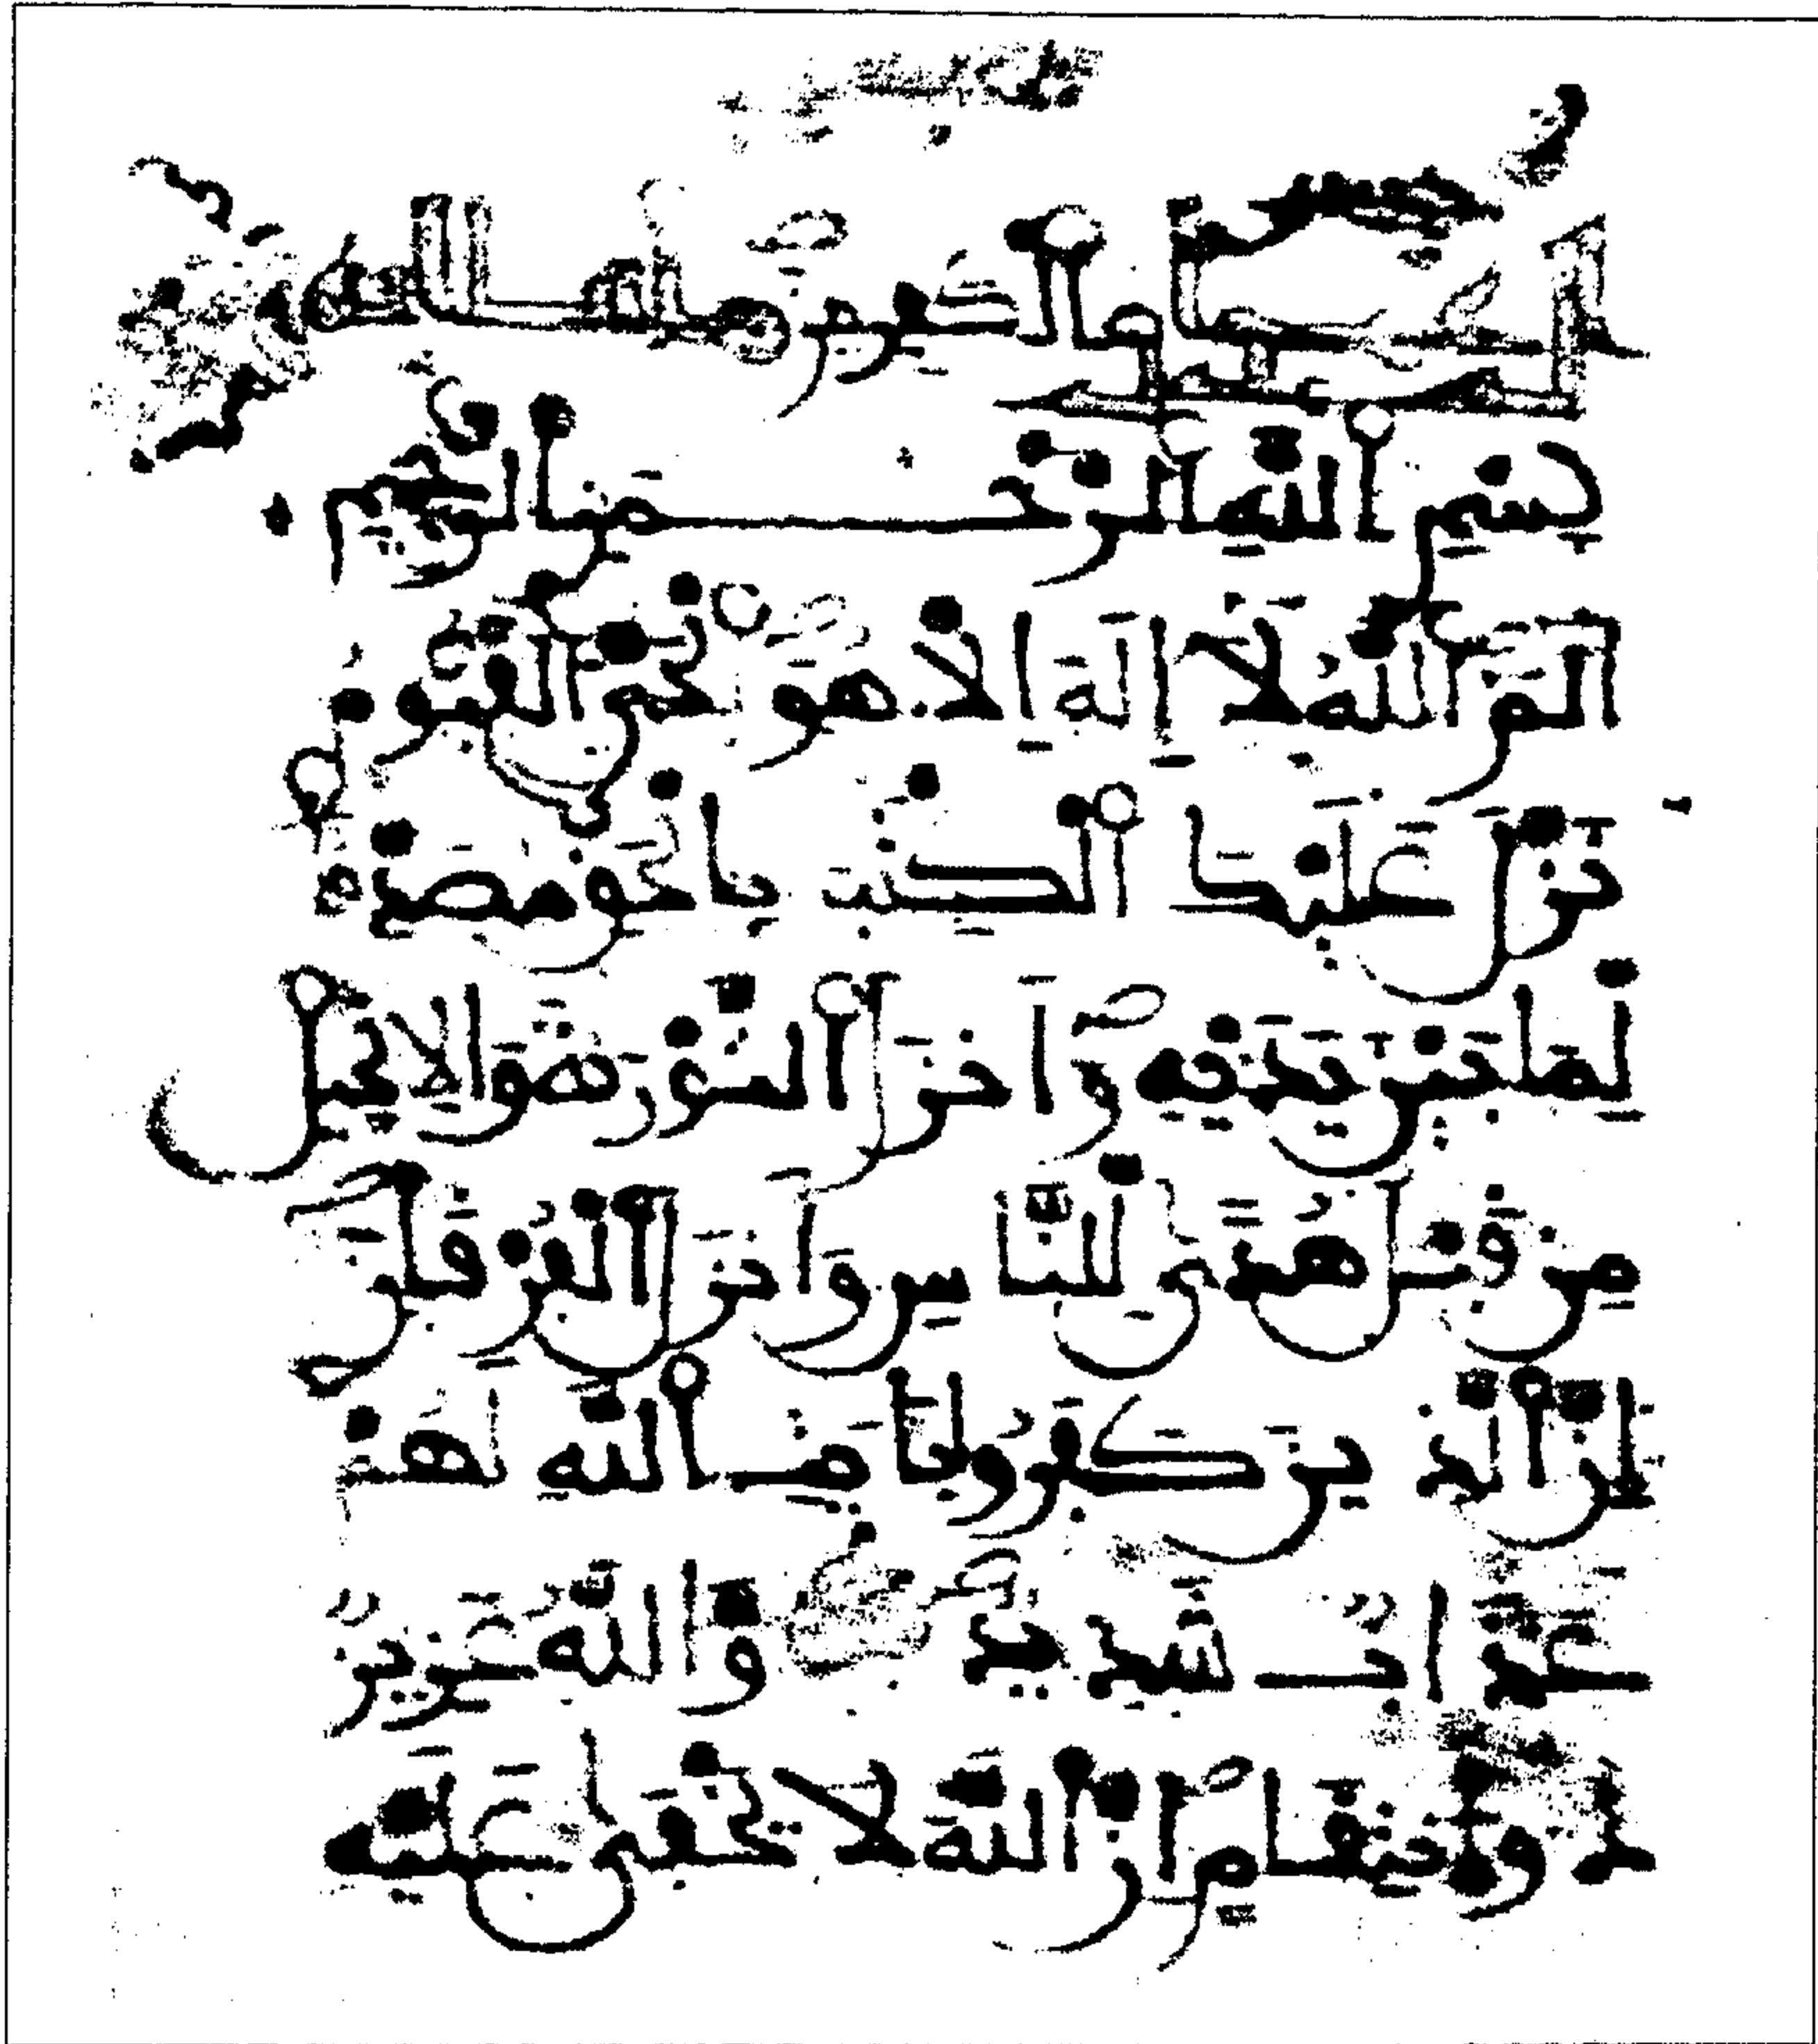 بِسْمِ اللَّهِ الرَّحْمَٰنِ الرَّحِيمِ
الٓمٓ اللَّهُ لَا إِلَٰهَ إِلَّا هُوَ الْحَيُّ الْقَيُّومُ
نَزَّلَ عَلَيْكَ الْكِتَٰبَ بِالْحَقِّ مُصَدِّقًا
لِّمَا بَيْنَ يَدَيْهِ وَأَنزَلَ التَّوْرَىٰةَ وَالْإِنجِيلَ
مِن قَبْلُ هُدًى لِّلنَّاسِ وَأَنزَلَ الْفُرْقَانَ
إِنَّ الَّذِينَ كَفَرُوا بِـَٔايَٰتِ اللَّهِ لَهُمْ
عَذَابٌ شَدِيدٌ وَاللَّهُ عَزِيزٌ
ذُو انتِقَامٍ إِنَّ اللَّهَ لَا يَخْفَىٰ عَلَيْهِ